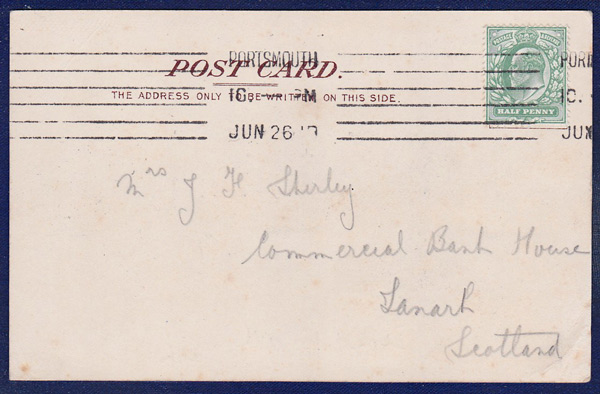 PORTSMOUTH
POST CARD.
THE ADDRESS ONLY TO BE WRITTEN ON THIS SIDE.
JUN 26
POSTAGE REVENUE
HALF PENNY
Mrs J H Sherley
Commercial Bank House
Lanark
Scotland